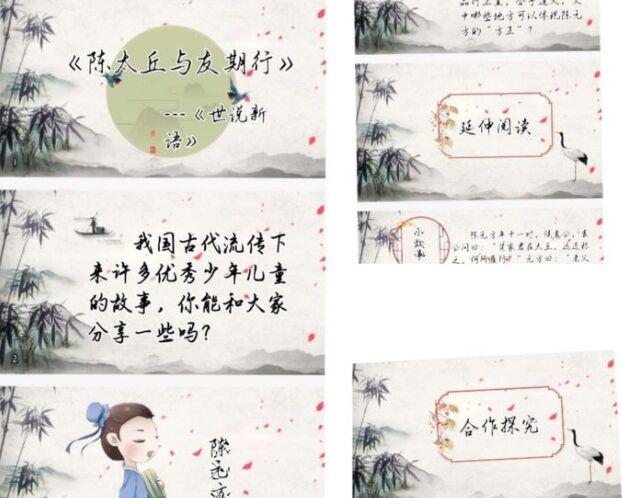 《陈太丘与友期行》
---《世说新
语》
1
我国古代流传下
来许多优秀少年儿童
的故事，你能和大家
分享一些吗？
2
陈元方
中哪些地方可以体现陈元
方的“方正”？
延伸阅读
小故事
陈元方年十一时，候袁公，袁
公问曰：“贤家君在太丘，远近称
之，何所履行？”元方曰：“老父
合作探究